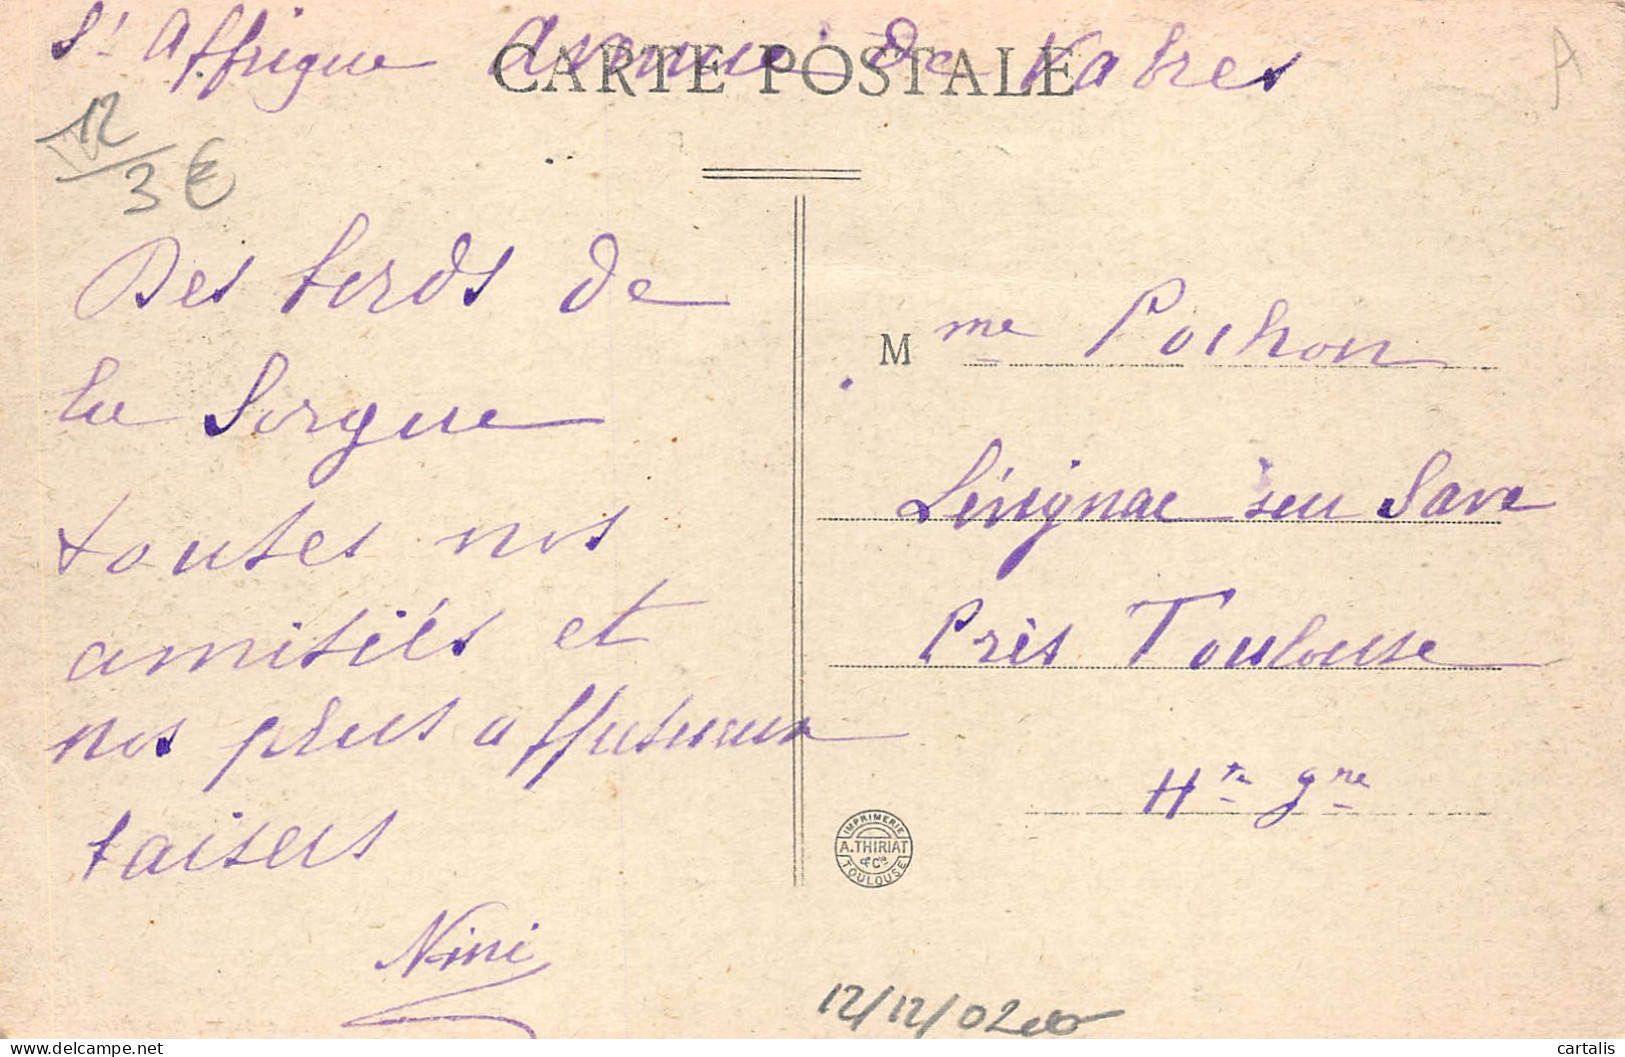 St Affrique Avenue de Vabres
CARTE POSTALE
A
12
3 €
Des bords de
la Sorgue
toutes nos
amitiés et
nos plus affectueux
baisers
Nini
Mme Pochon
Lévignac sur Save
Près Toulouse
Hte Gne
IMPRIMERIE
A. THIRIAT
& Cie
TOULOUSE
12/12/02
cartalis
delcampe.net